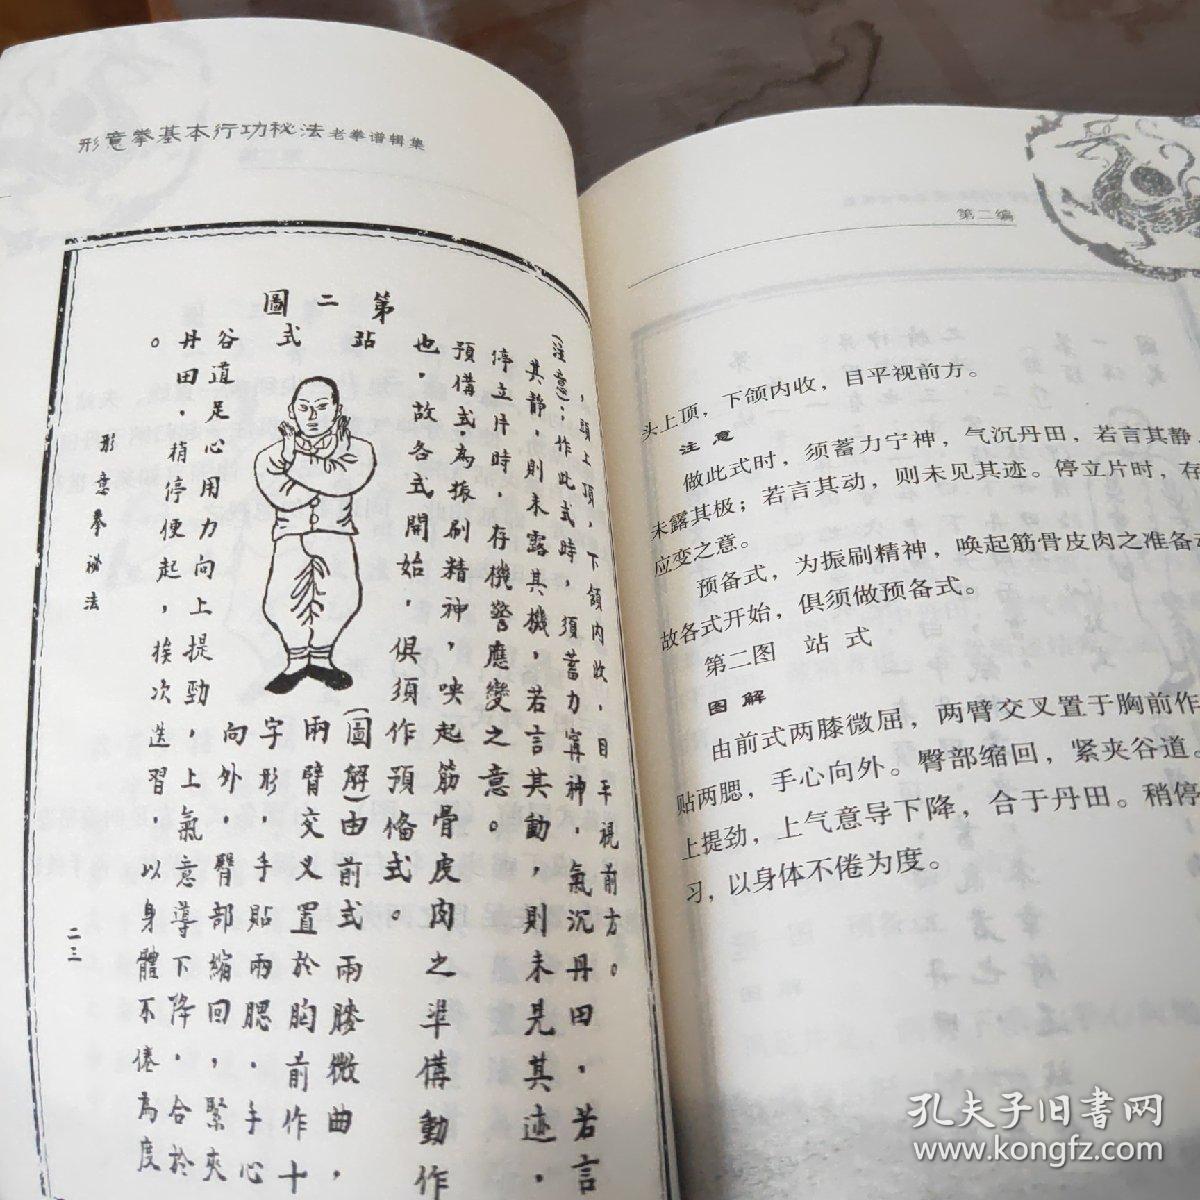 形意拳基本行功秘法老拳谱辑集
，頭上頂，下頷内收，目平視前方。
（注意）：作此式時，須蓄力寧神，氣沉丹田，若言
其静，則未露其機，若言其動，則未見其迹，
停立片時，存機警應變之意。
預備式，為振刷精神，唤起筋骨皮肉之準備動作
也，故各式開始，俱須作預備式。
第二圖
站式
（圖解）由前式兩膝微曲，
兩臂交叉置於胸前作十
字形，手貼兩腮，手心
向外，臀部縮回，緊夾
谷道足心用力向上提勁，上氣意導下降，合於
丹田，稍停便起，挨次迭習，以身體不倦為度
。
形意拳秘法
二三
第二编
头上顶，下颌内收，目平视前方。
注意
做此式时，须蓄力宁神，气沉丹田，若言其静
未露其极；若言其动，则未见其迹。停立片时，存
应变之意。
预备式，为振刷精神，唤起筋骨皮肉之准备
故各式开始，俱须做预备式。
第二图 站式
图解
由前式两膝微屈，两臂交叉置于胸前作
贴两腮，手心向外。臀部缩回，紧夹谷道。
上提劲，上气意导下降，合于丹田。稍停
习，以身体不倦为度。
孔夫子旧书网
www.kongfz.com